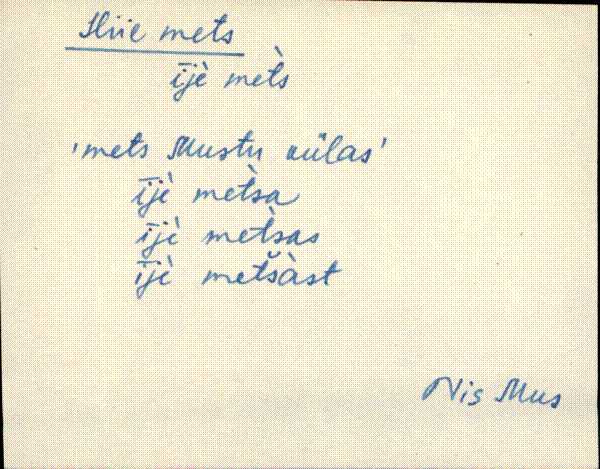 Hiie mets
ījè met̀s
'mets Mustu külas'
ījè met̀sa
ījè met̀sas
ījè metšàst
Nis Mus